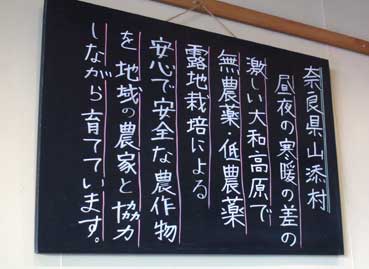 奈良県山添村
昼夜の寒暖の差の
激しい大和高原で
無農薬・低農薬
露地栽培による
安心で安全な農作物
を地域の農家と協力
しながら育てています。